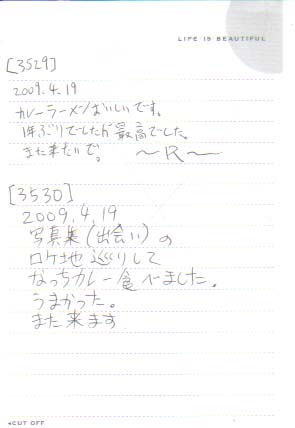 LIFE IS BEAUTIFUL
[3529]
2009.4.19
カレーラーメンおいしいです。
1年ぶりでしたが最高でした。
また来たいで。
～R～
[3530]
2009.4.19
写真集(出会い)の
ロケ地巡りして
なっちカレー食べました。
うまかった。
また来ます
◄CUT OFF